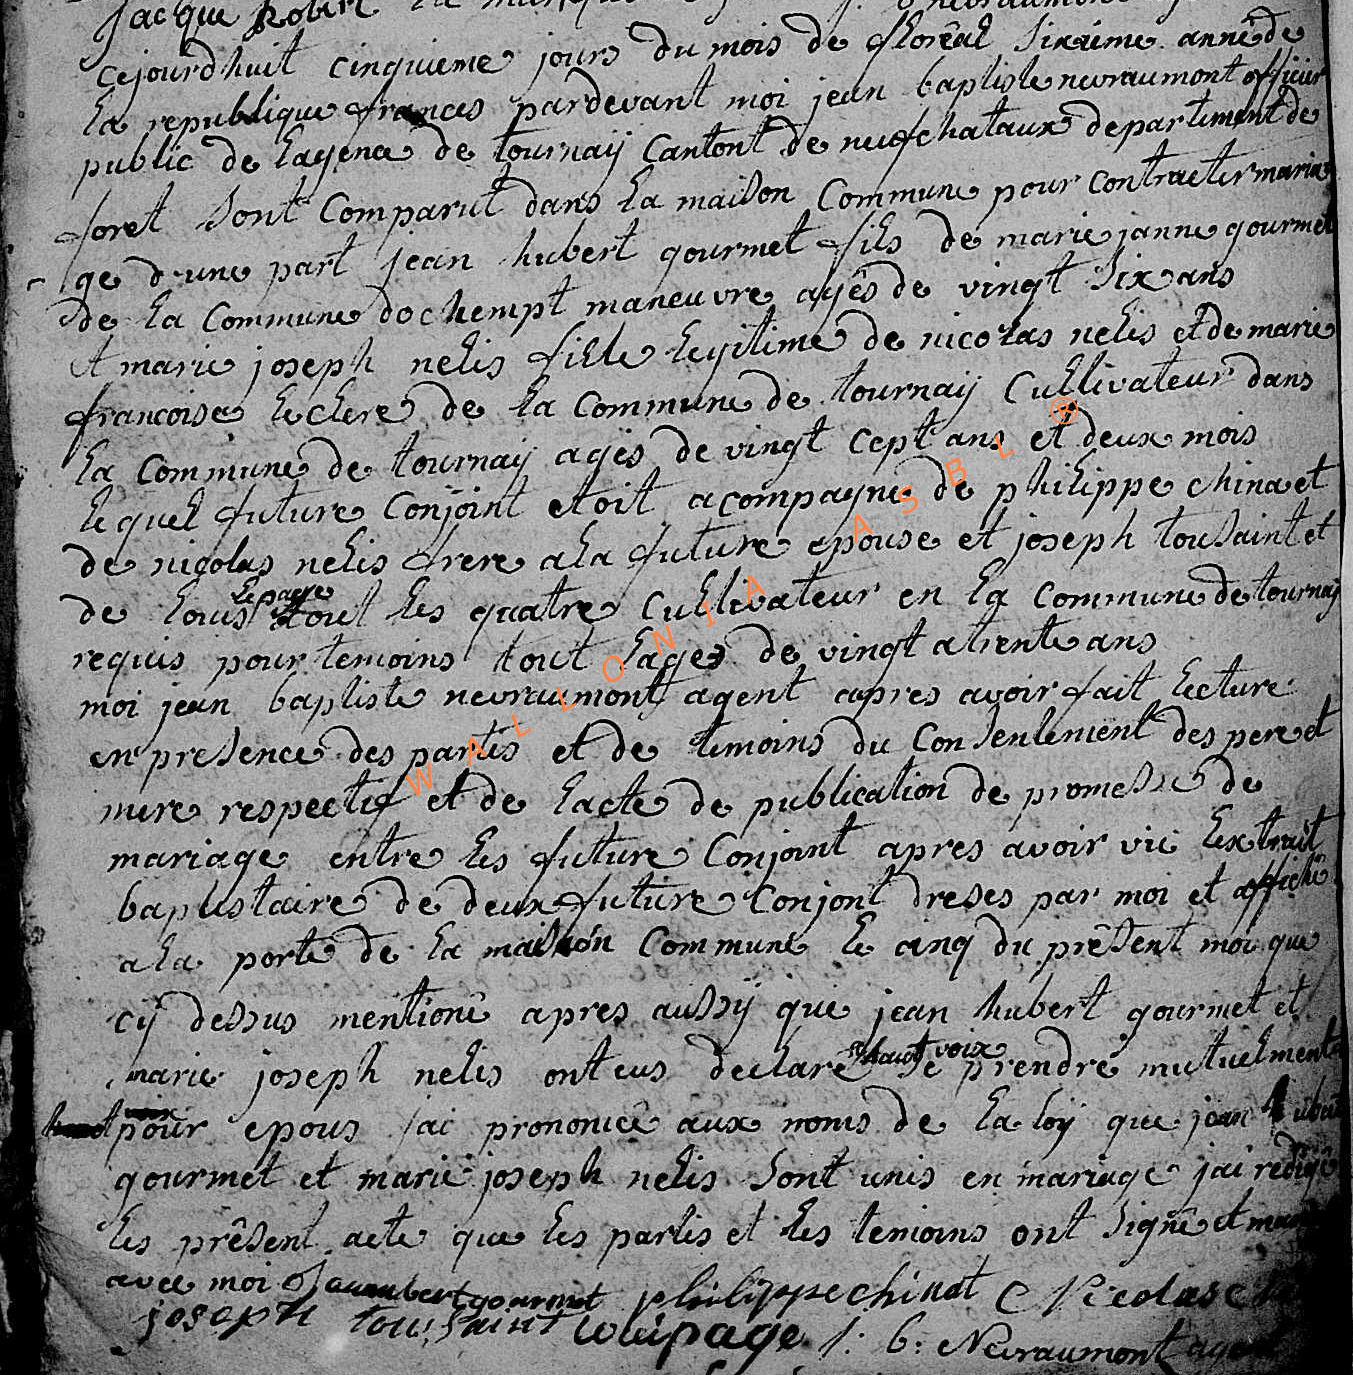 jacque Robert
cejourdhuit cinquieme jours du mois de floreal sixieme année de
la republique frances pardevant moi jean baptiste nevraumont officier
public de lagence de tournaÿ Cantont de neufchataux departement de
foret sont Comparut dans la maison Commune pour contracter maria
ge d'une part jean hubert gourmet fils de marie janne gourmet
de la Commune dochempt maneuvre agés de vingt six ans
et marie joseph nelis fille legitime de nicolas nelis et de marie
francoise leclere de la Commune de tournaÿ Cultivateur dans
la Commune de tournaÿ agés de vingt cept ans et deux mois
lequel future Conjoint etoit acompagne de philippe china et
de nicolas nelis frere a la future epouse et joseph tousaint et
de louis lepage tout les quatre Cultivateur en la Commune de tournaÿ
requis pour temoins tout lages de vingt a trente ans
moi jean baptiste nevraumont agent apres avoir fait lecture
en presence des partis et de temoins du Consentement des pere et
mere respectif et de lacte de publication de promesse de
mariage entre les future Conjoint apres avoir vie lextrait
baptistaire de deux future Conjont dreses par moi et affiché
a la porte de la maison Commune le cinq du présent moi que
cÿ dessus mentioné apres aussÿ que jean hubert gourmet et
marie joseph nelis ont eus declaré a haut voix se prendre mutuelment
pour epous jai prononcée aux noms de la loÿ que jean hubert
gourmet et marie joseph nelis sont unis en mariage jai redigé
les présent acte que les partis et les temoins ont signé et
avec moi Jeanubert gourmet philippe chinot Nicolas
joseph tousaint lepage j: b: Nevraumont agent
WALLONIA ASBL ®